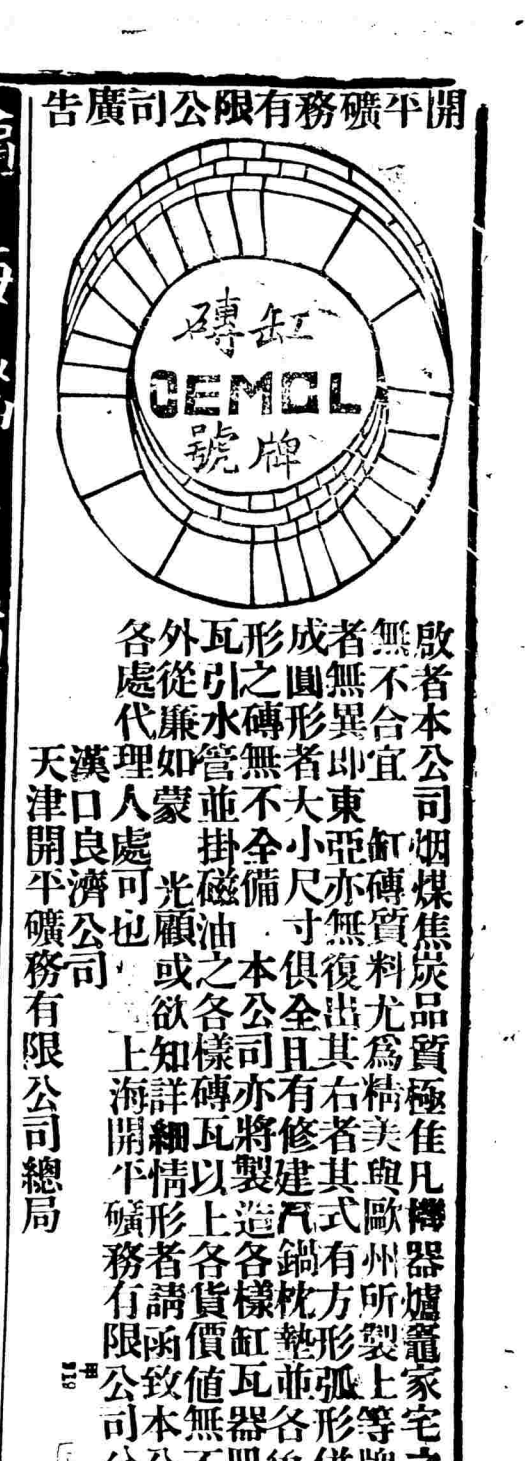 開平礦務有限公司廣告
缸磚
CEMOL
牌號
啟者本公司烟煤焦炭品質極佳凡機器爐竈家宅之
無不合宜　缸磚質料尤爲精美與歐州所製上等牌
者無異即東亞亦無復出其右者其式有方形弧形併
成圓形者大小尺寸俱全且有修建汽鍋枕墊並各後
形之磚無不全備　本公司亦將製造各樣缸瓦器皿
瓦引水管並掛磁油之各樣磚瓦以上各貨價値無不
外從廉如蒙　光顧或欲知詳細情形者請函致本公
各處代理人處可也　上海開平礦務有限公司分
漢口良濟公司
天津開平礦務有限公司總局